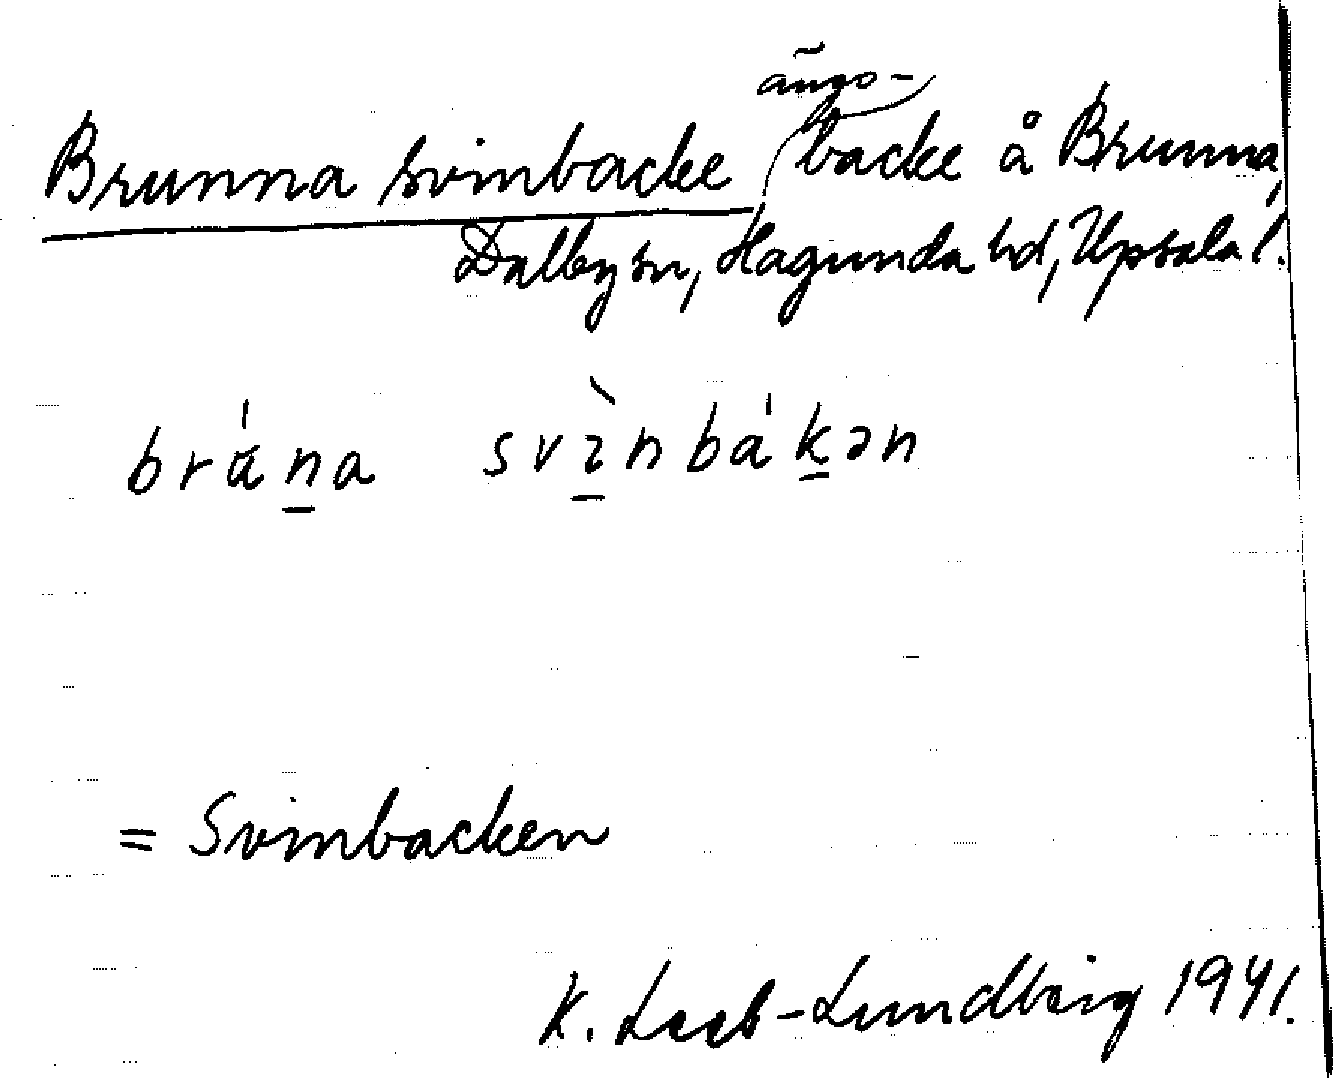 ängs-
Brunna svinbacke backe å Brunna,
Dalby sn, Hagunda hd, Upsala l.
brána svìnbákən
= Svinbacken
K. Leeb-Lundberg 1941.